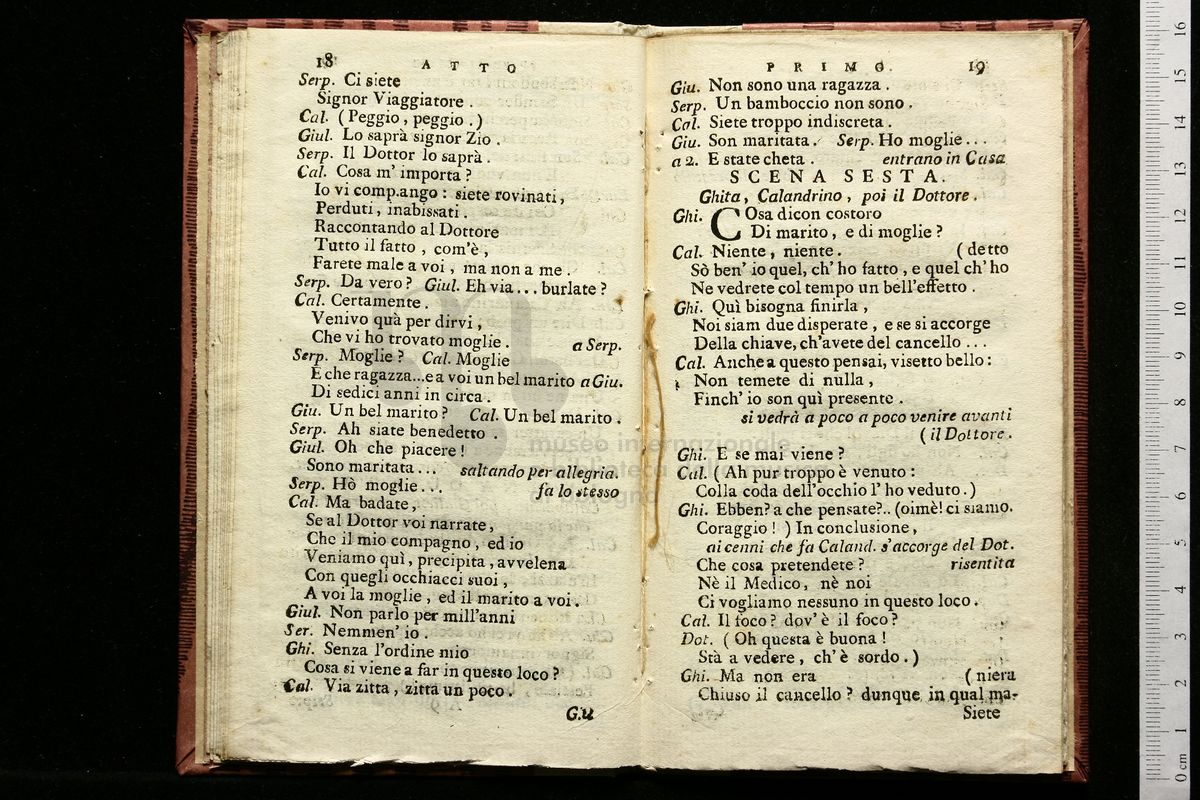 18 ATTO
Serp. Ci siete
Signor Viaggiatore.
Cal. (Peggio, peggio.)
Giul. Lo saprà signor Zio.
Serp. Il Dottor lo saprà.
Cal. Cosa m' importa?
Io vi comp.ango: siete rovinati,
Perduti, inabissati.
Raccontando al Dottore
Tutto il fatto, com'è,
Farete male a voi, ma non a me.
Serp. Da vero? Giul. Eh via... burlate?
Cal. Certamente.
Venivo quà per dirvi,
Che vi ho trovato moglie. a Serp.
Serp. Moglie? Cal. Moglie
E che ragazza...e a voi un bel marito a Giu.
Di sedici anni in circa.
Giu. Un bel marito? Cal. Un bel marito.
Serp. Ah siate benedetto.
Giul. Oh che piacere!
Sono maritata... saltando per allegria.
Serp. Hò moglie... fa lo stesso
Cal. Ma badate,
Se al Dottor voi narrate,
Che il mio compagno, ed io
Veniamo quì, precipita, avvelena
Con quegli occhiacci suoi,
A voi la moglie, ed il marito a voi.
Giul. Non parlo per mill'anni
Ser. Nemmen' io.
Ghi. Senza l'ordine mio
Cosa si viene a far in questo loco?
Cal. Via zitta, zitta un poco.
Giu
PRIMO. 19
Giu. Non sono una ragazza.
Serp. Un bamboccio non sono.
Cal. Siete troppo indiscreta.
Giu. Son maritata. Serp. Ho moglie...
a 2. E state cheta. entrano in Casa
SCENA SESTA.
Ghita, Calandrino, poi il Dottore.
Ghi. COsa dicon costoro
Di marito, e di moglie?
Cal. Niente, niente. (detto
Sò ben' io quel, ch' ho fatto, e quel ch' ho
Ne vedrete col tempo un bell'effetto.
Ghi. Quì bisogna finirla,
Noi siam due disperate, e se si accorge
Della chiave, ch'avete del cancello...
Cal. Anche a questo pensai, visetto bello:
Non temete di nulla,
Finch' io son quì presente.
si vedrà a poco a poco venire avanti
(il Dottore.
Ghi. E se mai viene?
Cal. (Ah pur troppo è venuto:
Colla coda dell'occhio l' ho veduto.)
Ghi. Ebben? a che pensate?.. (oimè! ci siamo.
Coraggio!) In conclusione,
ai cenni che fa Caland. s'accorge del Dot.
Che cosa pretendete? risentita
Nè il Medico, nè noi
Ci vogliamo nessuno in questo loco.
Cal. Il foco? dov' è il foco?
Dot. (Oh questa è buona!
Stà a vedere, ch' è sordo.)
Ghi. Ma non era (niera
Chiuso il cancello? dunque in qual ma-
Siete
museo internazionale
e biblioteca della musica
di bologna